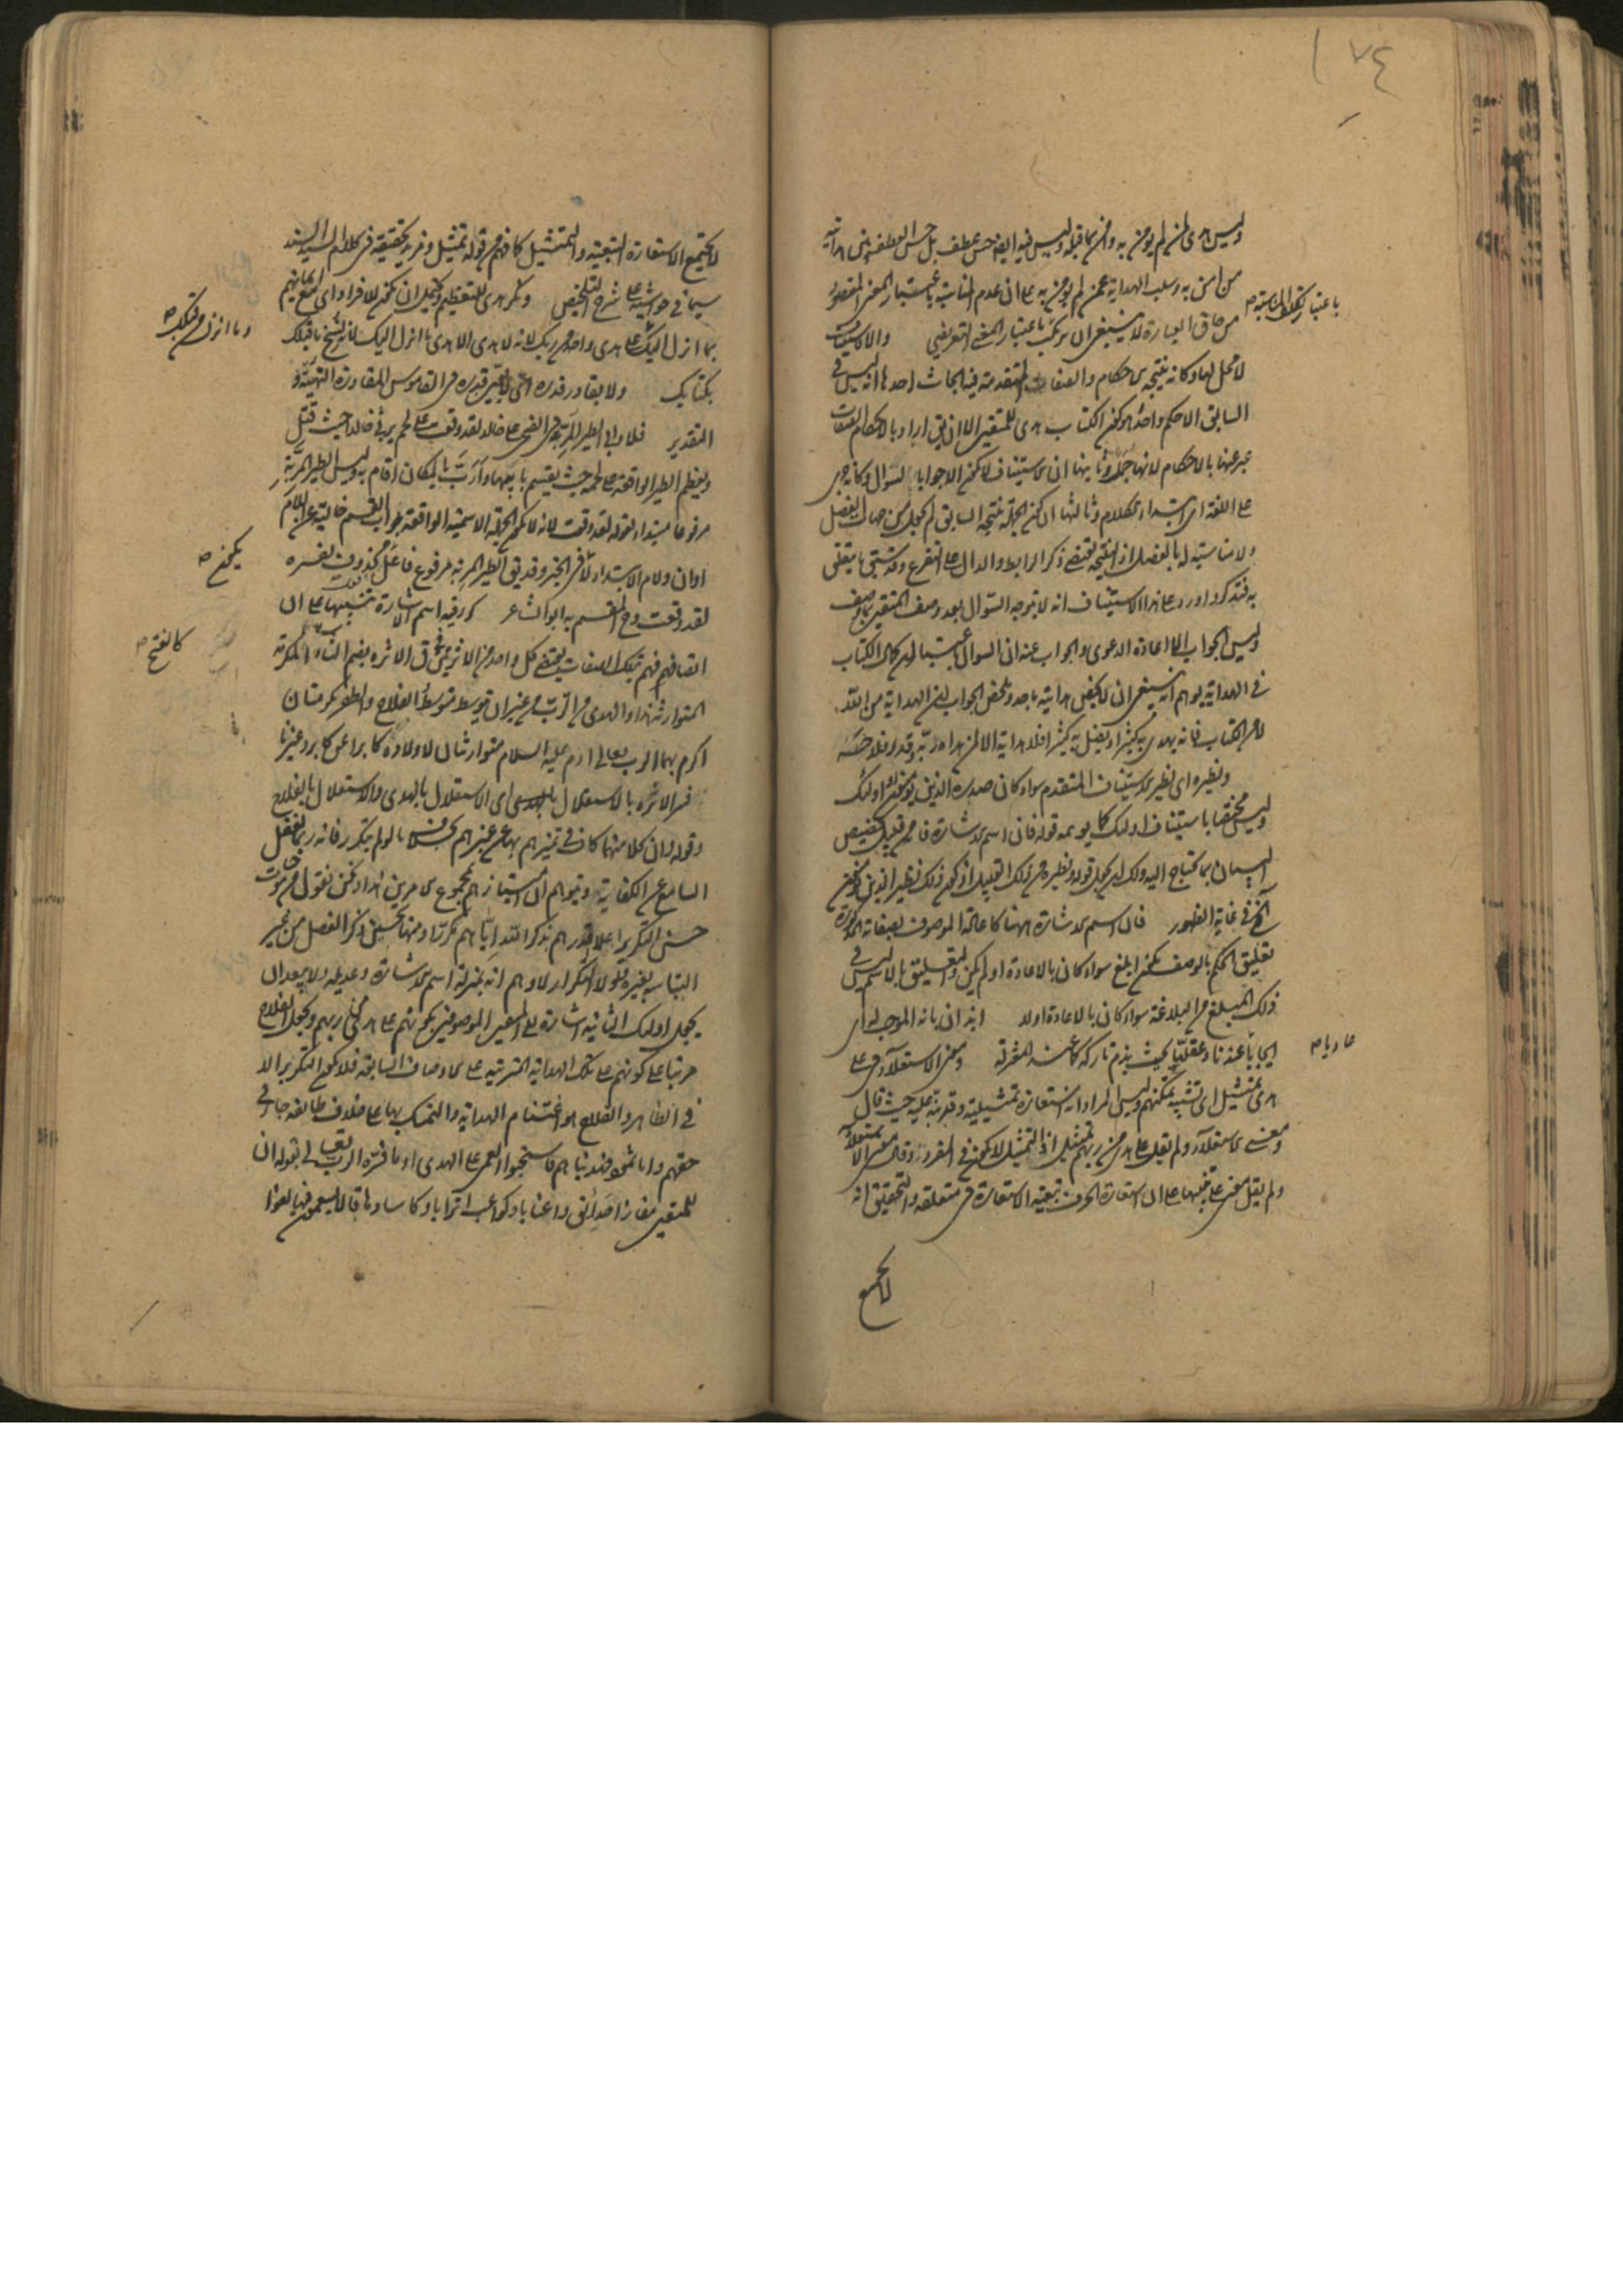 ١٧٤
وليس هدى لمن لم يؤمن به وامن بما قبله وليس فيه ايضا حسن عطف بل حسن العطف بين هداية
من امن به وسلب الهداية عمن لم يؤمن به على ان عدم المناسبة باعتبار المعنى المقصود
باعتبار تلك المناسبة صح
من حاق العبارة لا ينبغي ان يرتكب باعتبار المعنى التعريضي والاستيناف
لا محل لها وكانه نتيجة الاحكام والصفات المتقدمة فيه ابحاث احدها انه ليس في
السابق الا حكم واحد هو كون الكتاب هدى للمتقين الا ان يق اراد بالاحكام الصفات
عبر عنها بالاحكام لانها جمل وثانيها ان الاستيناف لا يكون الا جوابا لسوال وكانه جرى
على اللغة اى ابتداء كلام وثالثها ان كون الجملة نتيجة السابق لم يجعل من جهات الفصل
ولا مناسبة له بالفصل اذ النتيجة تقتضى ذكر الرابط والدال على التفرع وقد سبق ما يتعلق
به فتذكر واورد على هذا الاستيناف انه لا يتوجه السؤال بعد وصف المتقين بما وصف
وليس الجواب الا اعادة الدعوى والجواب عنه ان السوال باعتبار ان كمال الكتاب
في الهداية يوهم انه ينبغي ان لا يختص هداية باحد وملخص الجواب ان الهداية من الله
لا من الكتاب فانه يهدى به كثيرا ويضل به كثيرا فلا هداية الا لمن هداه ربه وقدر فلاحه
ونظيره اى نظير الاستيناف المتقدم سواء كان صدره الذين يؤمنون او اولئك
وليس مختصا باستيناف اولئك كما يوهمه قوله فان اسم الاشارة فانه من قبيل تخصيص
البيان بما يحتاج اليه ولك ان تجعل قوله ونظيره من ذلك القبيل اذ كون ذلك نظير الذين يؤمنون
الخ في غاية الظهور فان اسم الاشارة ههنا كاعادة الموصوف بصفاته المذكورة
تعليق الحكم بالوصف يكون ابلغ سواء كان بالاعادة او لم يكن والتعليق بالاسم ليس في
ذلك المبلغ من البلاغة سواء كان بالاعادة اولا ايذان بانه الموجب له اى
عاديا صح
ايجابا عندنا وعقليا بحيث يذم تاركه عند المعتزلة ومعنى الاستعلاء في على
هدى تمثيل اى تشبيه تمكنهم وليس المراد انه استعارة تمثيلية وقرينته عليه حيث قال
ومعنى الاستعلاء ولم يقل على هدى من ربهم تمثيل اذ التمثيل لا يكون في المفرد وقال معنى الاستعلاء
ولم يقل معنى على تنبيها على ان استعارة الحرف تبعية الاستعارة في متعلقه والتحقيق انه
لا يجتمع
لا يجتمع الاستعارة التبعية والتمثيل كما فهم من قوله تمثيل ومزيد تحقيقه في كلام السيد السند
سيما في حواشيه على شرح التلخيص ونكر هدى للتعظيم ويحتمل ان يكون للافراد اى مع ايمانهم
بما انزل اليك على هدى واحد من ربك لانه لا هدى الا هدى ما انزل اليك لانه نسخ ما قبلك
وما انزل من قبلك صح
بكتابك ولا يقادر قدره اى لا يبين قدره في القاموس المقادرة التهيئة و
التقدير فلا وابى الطير المربة في الضحى على خالد لقد وقعت على لحم يرثي خالد حيث قتل
ويعظم الطير الواقعة على لحمه حيث يقسم بابيها وارب بالمكان اقام به وليس الطير المربة
مرفوعا مبتدأ لقوله لقد وقعت لانه لا يكون الجملة الاسمية الواقعة جواب القسم خالية عن اللام
او ان ولام الابتداء لا في الخبر وقد يق الطير المربة مرفوع فاعل محذوف يفسره
يكون صح
لقد وقعت وح المقسم به ابو الشاعر كرر فيه اسم الاشارة تنبيها على ان
اتصافهم بتلك الصفات يقتضى كل واحد من الاثرتين ق الاثره بضم الثاء المكرمة
كالفتح صح
المتوارثة فذا والهدى من الرب من غير ان يتوسط متوسط الفلاح والظفر مكرمتان
اكرم بهما الرب تعالى ادم عليه السلام متوارثتان لاولاده كابرا عن كابر وغيرنا
فسر الاثره بالاستقلال بالهدى اى الاستقلال بالهدى والاستقلال بالفلاح
وقوله وان كلا منهما كاف في تميزهم بها عن غيرهم بخلاف ما لو لم يتكرر فانه ربما يغفل
السامع عن الكفاية ويتوهم ان امتيازهم بمجموع الامرين هذا ونحن نقول من موجبات
حسن التكرير اعلاء قدرهم بذكر الله اياهم مكرما ومنها تحسين ذكر الفصل من غير
التباسه بغيره فلولا التكرار لاوهم انه بمنزلة اسم الاشارة وعديله ولا يبعد ان
يجعل اولئك الثانية اشارة الى المتقين الموصوفين بكونهم على هدى من ربهم ويجعل الفلاح
مرتبا على كونهم على تلك الهداية المترتبة على الاوصاف السابقة فلا يكون التكرير الا
في الظاهر والفلاح هو اغتنام الهداية والتمسك بها على خلاف طائفة جاء في
حقهم واما ثمود فهديناهم فاستحبوا العمى على الهدى او ما فسره الرب تعالى بقوله ان
للمتقين مفازا حدائق واعنابا وكواعب اترابا وكاسا دهاقا لا يسمعون فيها لغوا